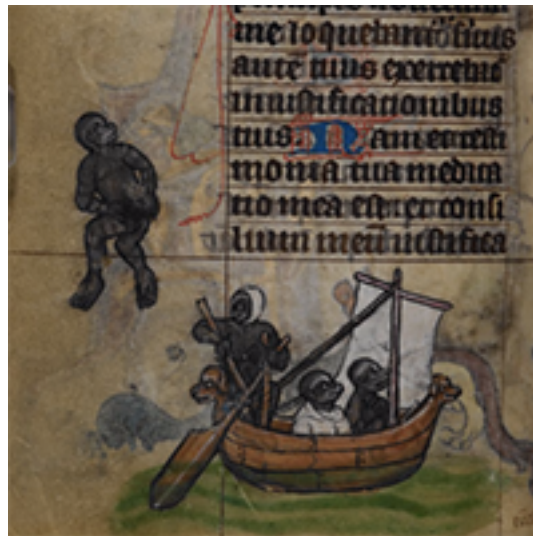 me loquebant
autē tuus exercebat
in iustificationibus
tuis Nam et testi
monia tua medita
tio mea est et consi
lium meū iustifica